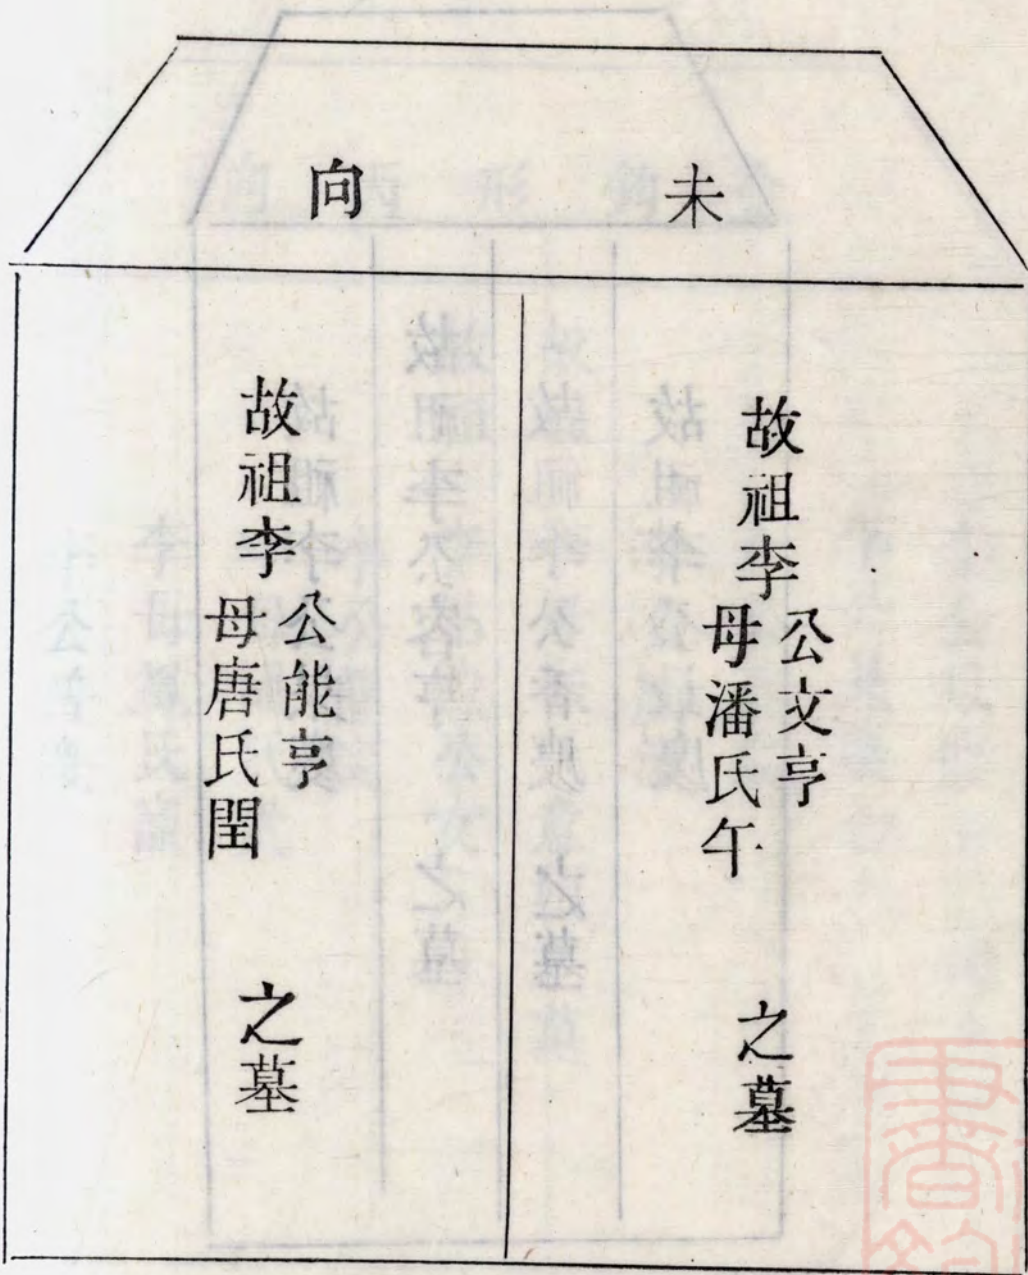 未向
故祖李
公文亨
母潘氏午
之墓
故祖李
公能亨
母唐氏閏
之墓